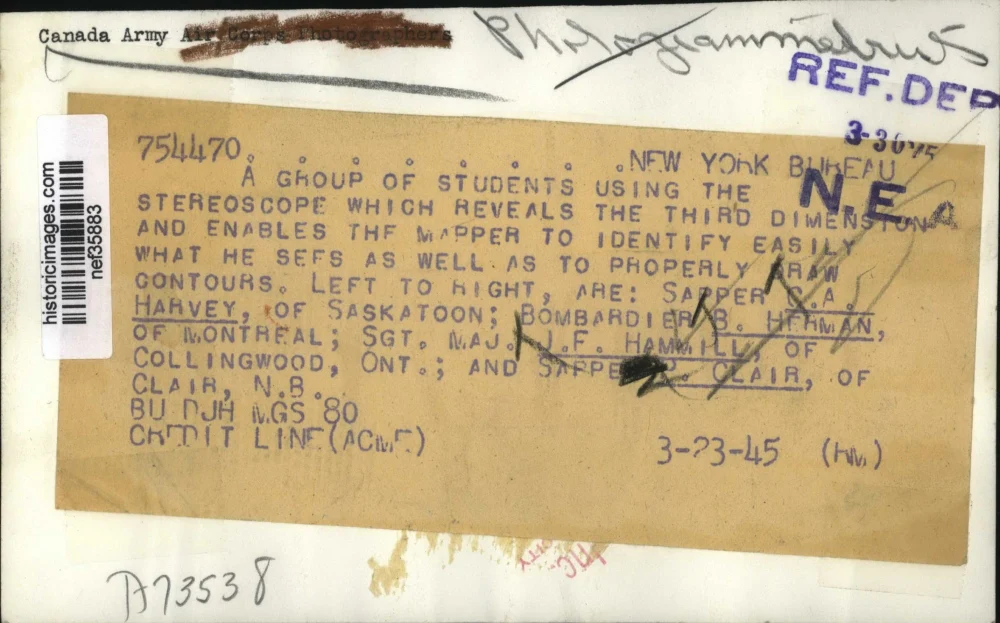 Canada Army Air Corps Photographers
REF. DEP
historicimages.com
nef35883
754470. . . . . . . .NEW YORK BUREAU
N.E.A
A GROUP OF STUDENTS USING THE
STEREOSCOPE WHICH REVEALS THE THIRD DIMENSION
AND ENABLES THE MAPPER TO IDENTIFY EASILY
WHAT HE SEES AS WELL AS TO PROPERLY DRAW
CONTOURS. LEFT TO RIGHT, ARE: SAPPER C.A.
HARVEY, OF SASKATOON; BOMBARDIER B. HERMAN,
OF MONTREAL; SGT. MAJ. J.F. HAMMILL, OF
COLLINGWOOD, ONT.; AND SAPPER CLAIR, OF
CLAIR, N.B.
BU DJH MGS 80
CREDIT LINE (ACME) 3-23-45 (HM)
A73538